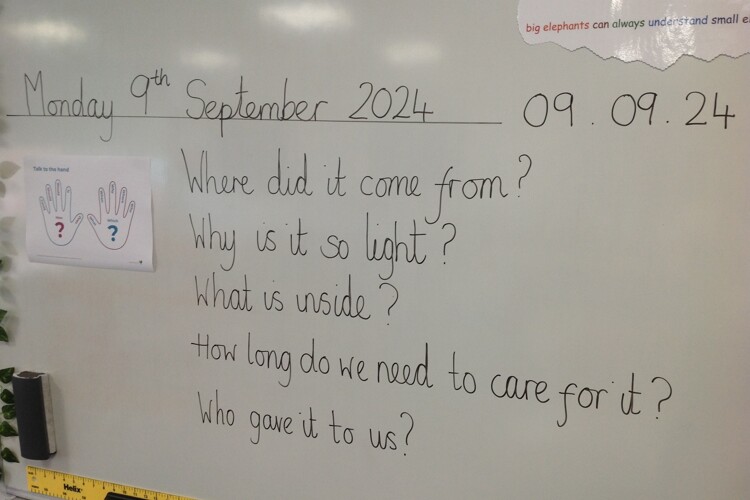 big elephants can always understand small e
Monday 9th September 2024
09.09.24
Talk to the hand
? ?
Where did it come from?
Why is it so light?
What is inside?
How long do we need to care for it?
Who gave it to us?
Helix